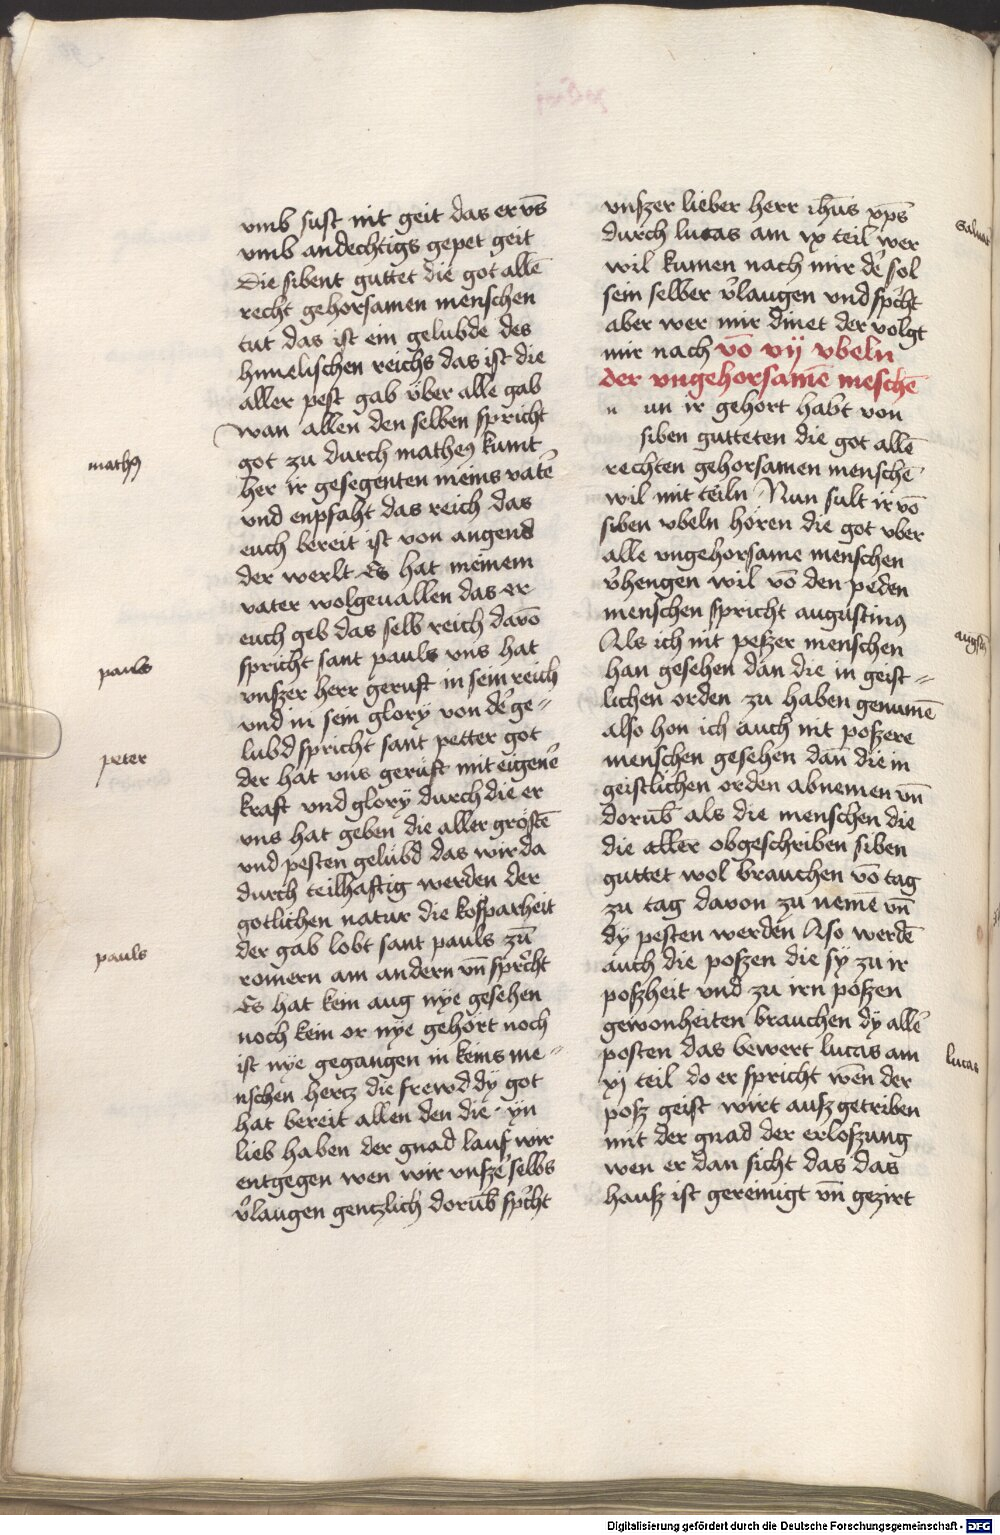 vmb sust nit geit das er vn̄s
vmb andechtigs gepet geit
Die sibent guttet die got allē
recht gehorsamen menschen
tut das ist ein gelubde des
himelischen reichs das ist die
aller pest gab über alle gab
wan allen den selben spricht
got zu durch matheꝰ kumt
her ir gesegenten meins vatē
vnd enpfaht das reich das
euch bereit ist von angend
der werlt Es hat meinem
vater wolgeuallen das er
euch geb das selb reich dauō
spricht sant pauls vns hat
vnszer herr geruft in sein reich
vnd in sein glorÿ von der ge⸗
lubd spricht sant petter got
der hat vns geruft mit eigenē
kraft vnd glorÿ durch die er
vns hat geben die aller gröstē
vnd pesten gelübd das wir da
durch teilhaftig werden der
gotlichen natur die kosparheit
der gab lobt sant pauls zū
romern am andern vn̄ spricht
Es hat kein aug nÿe gesehen
noch kein or nÿe gehört noch
ist nÿe gegangen in keins me⸗
nschen hercz die frewd dÿ got
hat bereit allen den die yn
lieb haben der gnad lauf wir
entgegen wen wir vnszē selbs
v̄laugen genczlich dorūb spc̄ht
mathꝰ
pauls
peter
pauls
vnszer lieber herr ihūs xp̄s
durch lucas am ix teil wer
wil kumen nach mir dē sol
sein selber v̄laugen vnd spc̄ht
aber wer mir dinet der volgt
mir nach vō vij vbeln
der vngehorsamē meschē
n un ir gehort habt von
siben gutteten die got allē
rechten gehorsamen menschē
wil mit teiln Nun sult ir vō
siben vbeln hören die got vber
alle vngehorsame menschen
v̄hengen wil vō den peden
menschen spricht augustinꝰ
Als ich nit peszer menschen
han gesehen dan die in geist⸗
lichen orden zu haben genumē
also hon ich auch nit poszere
menschen gesehen dan die in
geistlichen orden abnemen vn̄
dorūb als die menschen die
die aller obgeschriben siben
guttet wol brauchen vō tag
zu tag dauon zu nemē vn̄
dÿ pesten werden Aso werdē
auch die poszen die sÿ zu ir
poszheit vnd zu irn poszen
gewonheiten brauchen dÿ allē
posten das bewert lucas am
xj teil do er spricht wēn der
posz geist wirt ausz getriben
mit der gnad der erloszung
wen er dan sicht das das
hausz ist gereinigt vn̄ gezirt
lucas
Digitalisierung gefördert durch die Deutsche Forschungsgemeinschaft - DFG